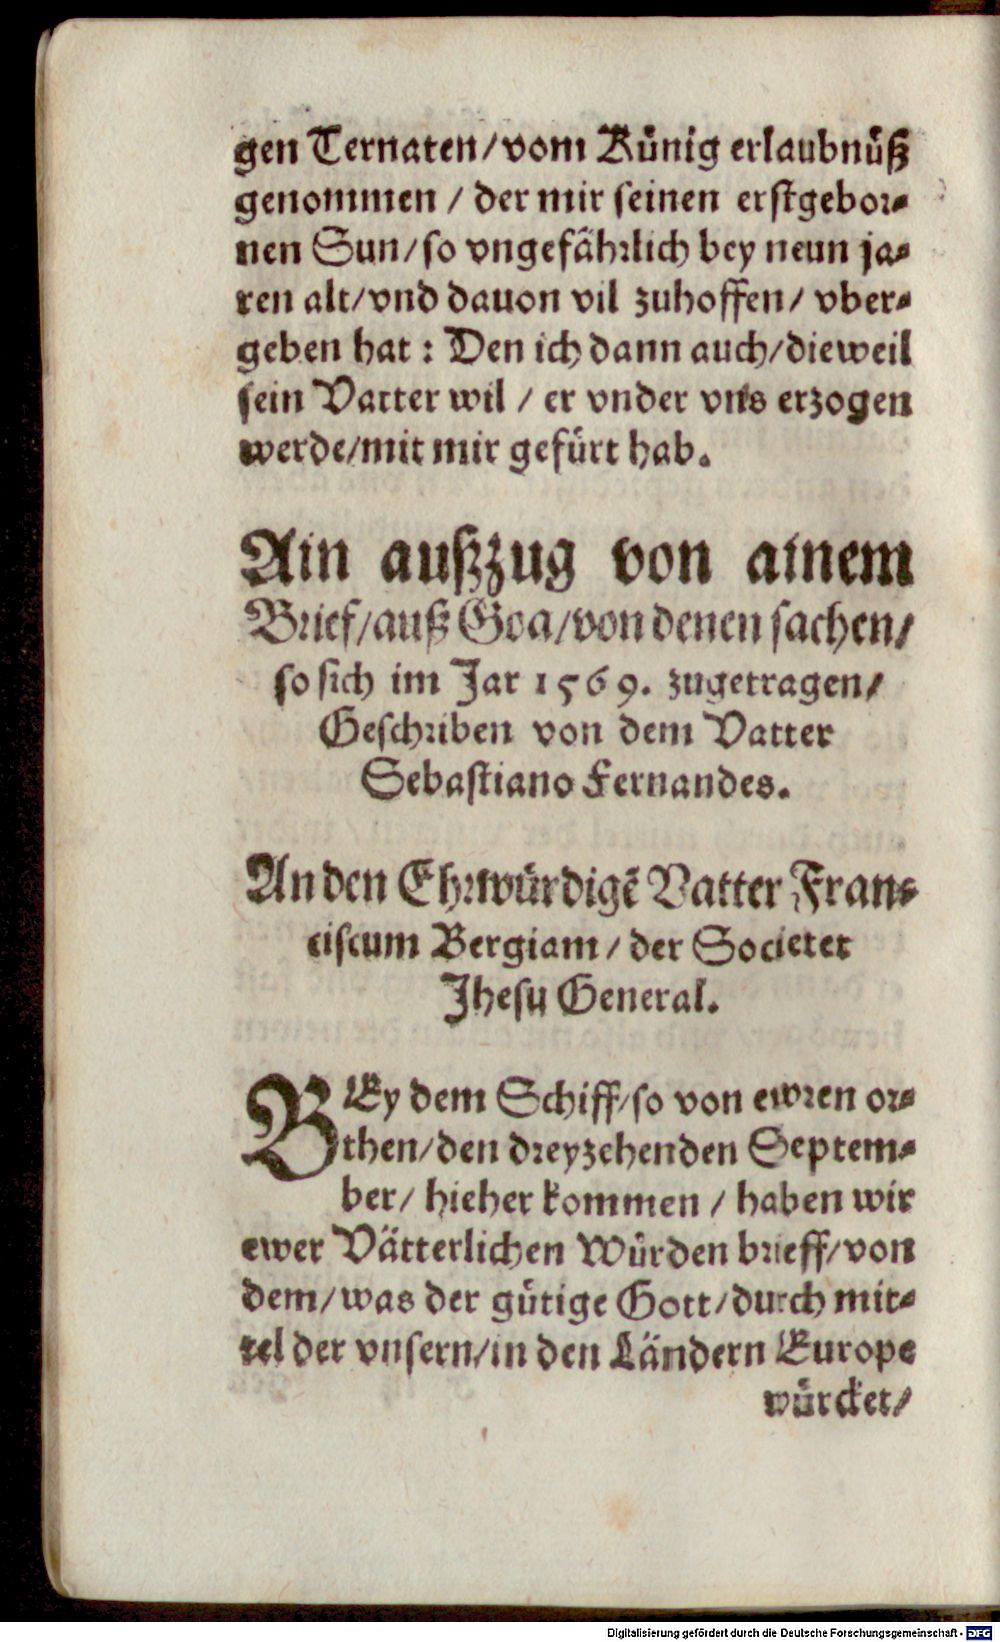 gen Ternaten/vom Künig erlaubnüß
genommen / der mir seinen erstgebor⸗
nen Sun/so vngefährlich bey neun ja⸗
ren alt/vnd dauon vil zuhoffen/ vber⸗
geben hat : Den ich dann auch/dieweil
sein Vatter wil / er vnder vns erzogen
werde/mit mir gefürt hab.
Ain außzug von ainem
Brief/auß Goa/von denen sachen/
so sich im Jar 1569. zugetragen/
Geschriben von dem Vatter
Sebastiano Fernandes.
An den Ehrwürdigẽ Vatter Fran⸗
ciscum Bergiam / der Societet
Jhesu General.
BEy dem Schiff/so von ewren or⸗
then/den dreyzehenden Septem⸗
ber/ hieher kommen / haben wir
ewer Vätterlichen Würden brieff/von
dem/was der gütige Gott/durch mit⸗
tel der vnsern/in den Ländern Europe
würcket/
Digitalisierung gefördert durch die Deutsche Forschungsgemeinschaft - DFG